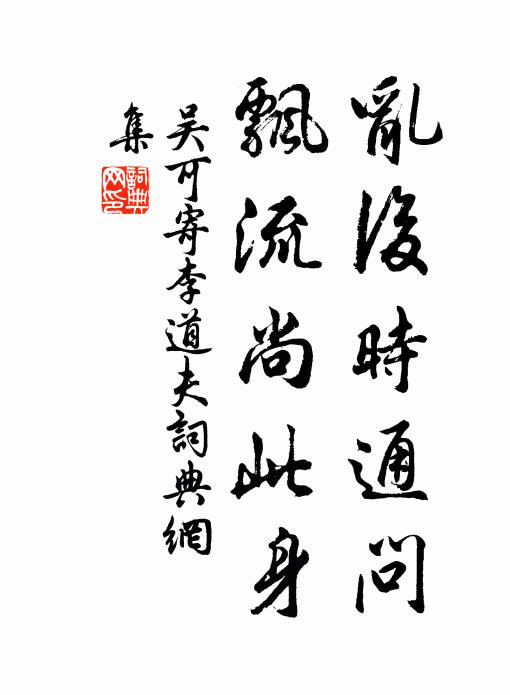 亂後時通問
飄流尚此身
吳可寄李道夫詞典網
集
詞典
网印